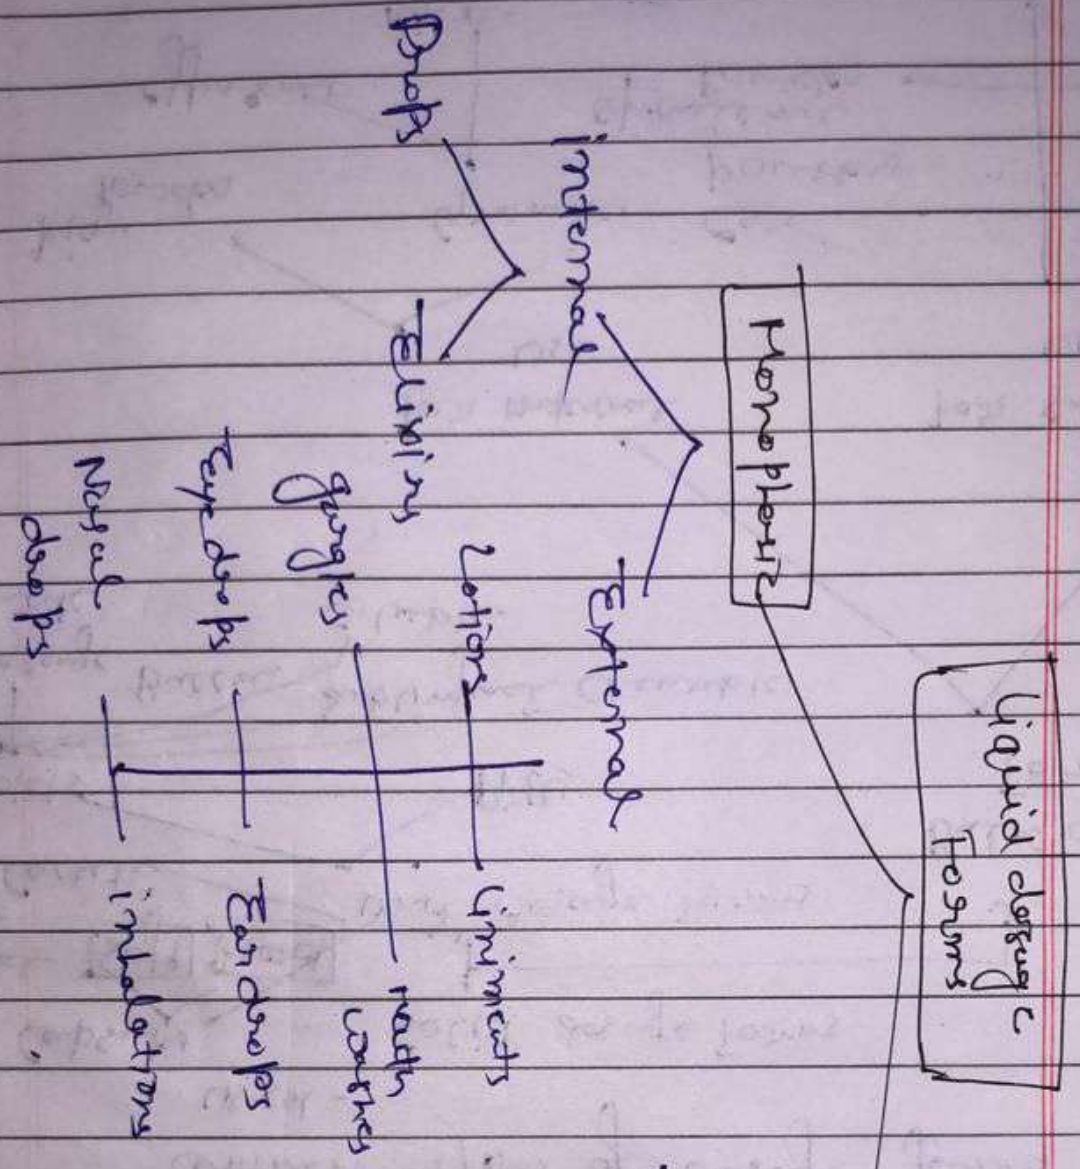 Liquid dosage
Forms
Monophasic
internal
External
Drops
Elixirs
Lotions
Liniments
gargles
mouth
washes
Eye drops
Ear drops
Nasal
drops
inhalations